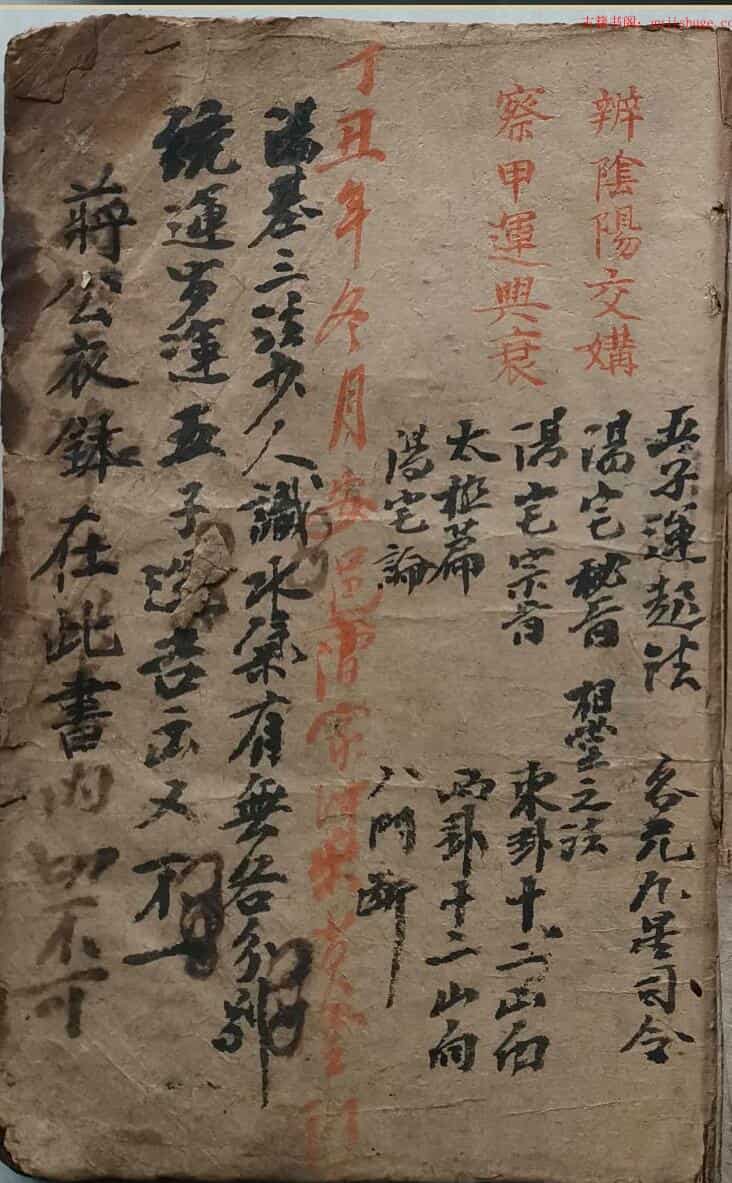 古籍书阁：gujishuge.co
辨陰陽交媾
察甲運興衰
五子運起法
各元九星司令
陽宅秘旨
相堂之法
陽宅宗旨
東卦十二山向
太極篇
西卦十二山向
陽宅論
八門斷
丁丑年冬月
陽基三法少人識水氣有無各分別
統運岁運五子運吉凶又不一
蔣公衣鉢在此書內切不可